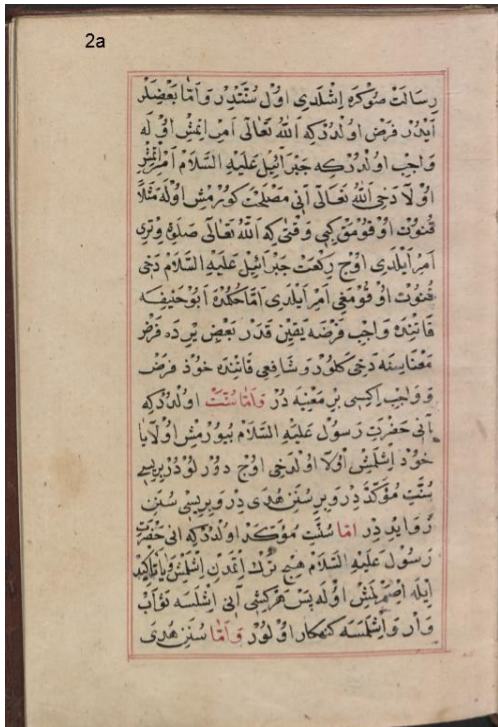 2a
رِسَالَتْ صُوڭرَه اِشْلَدِى اُولْ سُنَّتْدِرْ وَاَمَّا بَعْضِلَرْ
اَيْدُرْ فَرْضْ اولْدُرْ كه اَللّٰهُ تَعَالٰى اَمِرْ اِتْمِشْ اوُله
وَاجِبْ اولْدُرْ كه جَبْرَائِيلْ عَلَيْهِ السَّلَامْ اَمِرْ اِتْمِشْ
اوُلَا دَخِى اَللّٰهُ تَعَالٰى اَنِى مَصْلَحَتْ كورْمِشْ اوُلَه مَثَلًا
قُنوُتْ اوُقوُمَقْ كِبِى وَقْتٰى كه اَللّٰهُ تَعَالٰى صَلوٰةِ وِتْرِى
اَمِرْ اَيْلَدِى اوُچْ رَكْعَتْ جَبْرَائِيلْ عَلَيْهِ السَّلَامْ دَخِى
قُنوُتْ اوُقوُمَغِى اَمِرْ اَيْلَدِى اَمَّا حُكْمُدَه اَبوُحَنِيفَه
قَاتِنْدَه وَاجِبْ فَرْضَه يَقِينْ قَدَرْ بَعْضِ يِرْدَه فَرْضْ
مَعْنَاسِنَه دَخِى كَلوُرْ وَشَافِعِى قَاتِنْدَه خوُدْ فَرْضْ
وَوَاجِبْ اِكِيسِى بِرْ مَعْنِيَه دُرْ وَاَمَّا سُنَّتْ اولْدُرْ كه
اَنِى حَضْرَتِ رَسوُلْ عَلَيْهِ السَّلَامْ بُيوُرْمِشْ اوُلَا يَا
خوُدْ اِشْلَمِشْ اوُلَا اولْدَخِى اوُچْ دوُرْلوُدُرْ بِرِيسِى
سُنَّتِ مُؤَكَّدَ دِرْ وَبِرِ سُنَنِ هُدَى دِرْ وَبِرِيسِى سُنَنِ
زَوَايِدْ دِرْ اَمَّا سُنَّتِ مُؤَكَّدَ اولْدُرْ كه اَنِى حَضْرَتِ
رَسوُلْ عَلَيْهِ السَّلَامْ هِيچْ تَرْكْ اِتْمَدِنْ اِشْلَمِشْ وَيَا تَاْكِيدْ
اِيلَه اِصْمَرْلَمِشْ اوُلَه پَسْ هَرْ كِشِى اَنِى اِشْلَسَه ثَوَابْ
وَارْ وَاِشْلَمَسَه كُنَهْكَارْ اوُلوُرْ وَاَمَّا سُنَنِ هُدَى